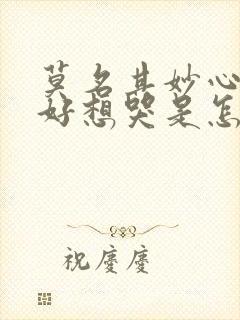 莫名其妙心
好想哭是怎
祝慶慶